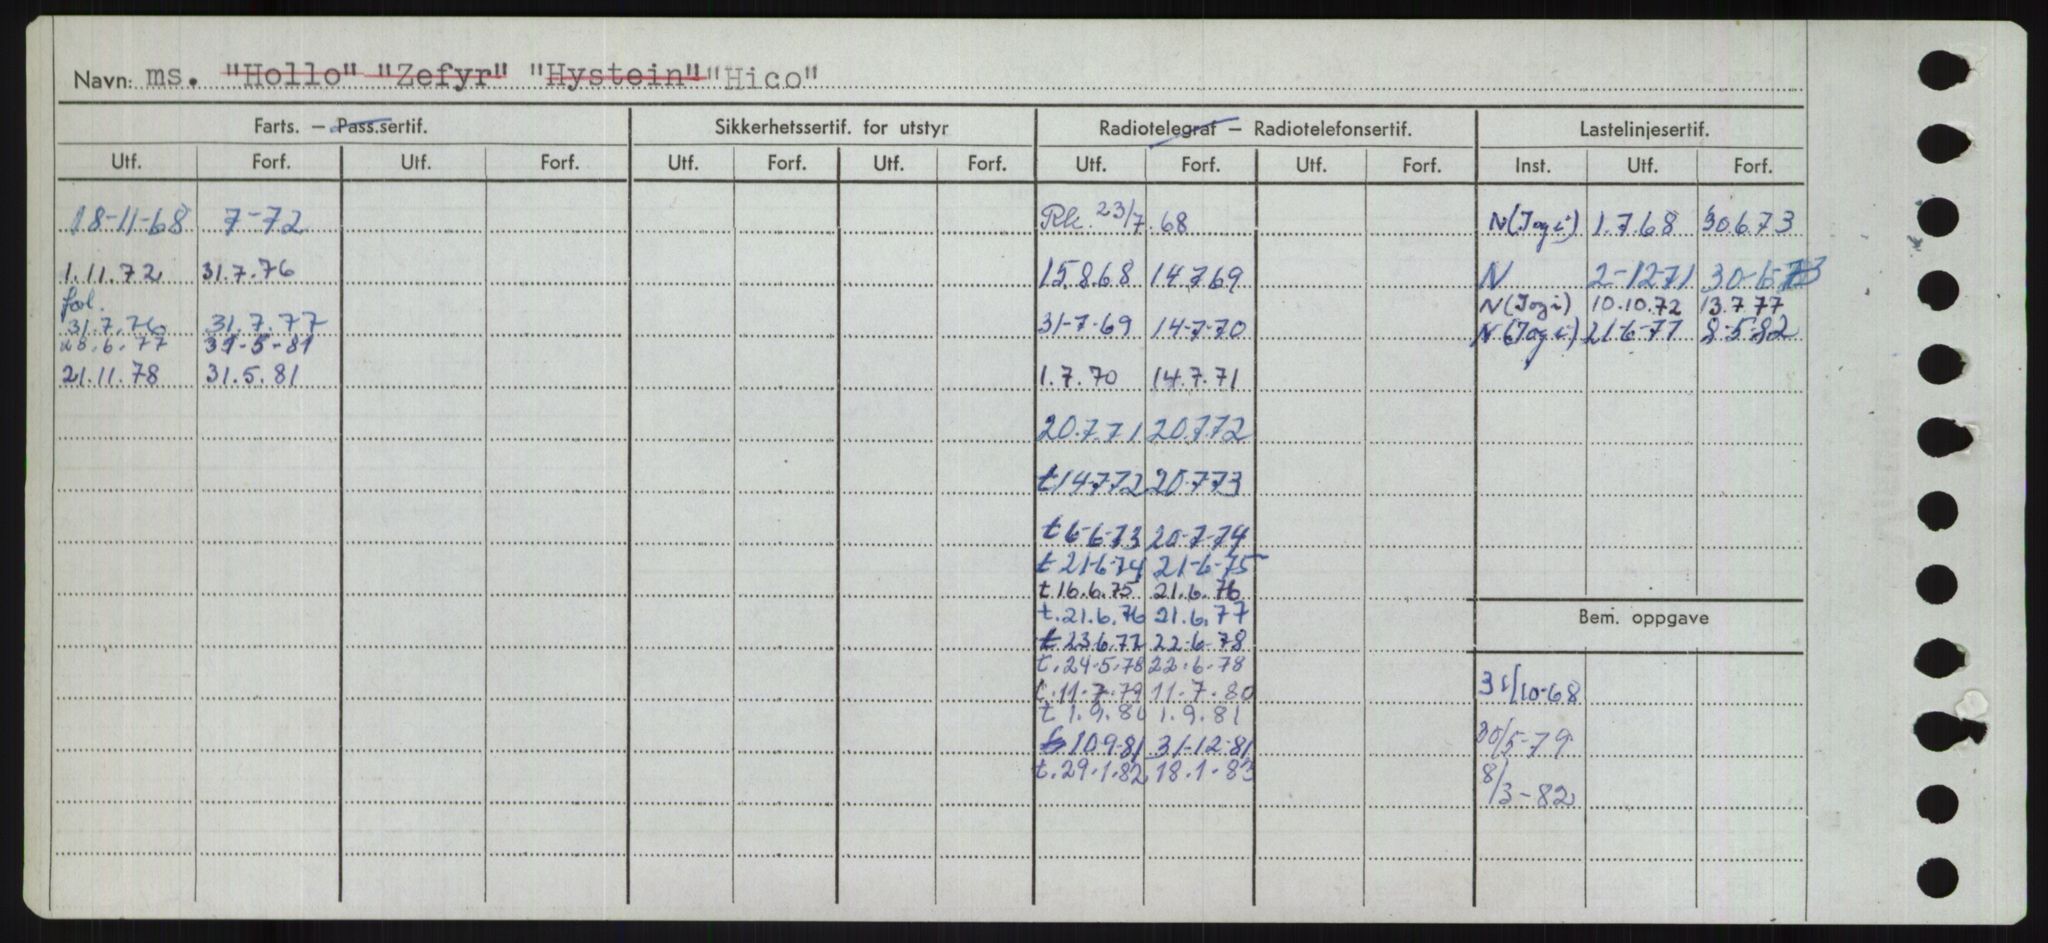 Navn: ms. "Hollo" "Zefyr" "Hystein" "Hico"
Farts. — Pass.sertif. Sikkerhetssertif. for utstyr Radiotelegraf — Radiotelefonsertif. Lastelinjesertif.
Utf. Forf. Utf. Forf. Utf. Forf. Utf. Forf. Utf. Forf. Utf. Forf. Inst. Utf. Forf.
18-11-68 7-72 Rk. 23/7.68 N(Jogi) 1.7.68 30.6.73
1.11.72 31.7.76 15.8.68 14.7.69 N 2-12-71 30-6-73
fol. N(Jogi) 10.10.72 13.7.77
31.7.76 31.7.77 31-7-69 14-7-70 N(Jogi) 21-6-77 8-5-82
28.6.77 31-5-81
21.11.78 31.5.81 1.7.70 14.7.71
20.7.71 20.7.72
t 14.7.72 20.7.73
t 6-6-73 20-7-74
t 21-6-74 21-6-75
t. 16.6.75 21.6.76
t. 21.6.76 21.6.77
Bem. oppgave
t 23.6.77 22-6-78
t. 24.5.78 22.6.78
t. 11-7-79 11-7-80 31/10-68
t 1.9.80 1.9.81
10.9-81 31-12-81 30/5-79
t. 29.1.82 18.1.83 8/3-82